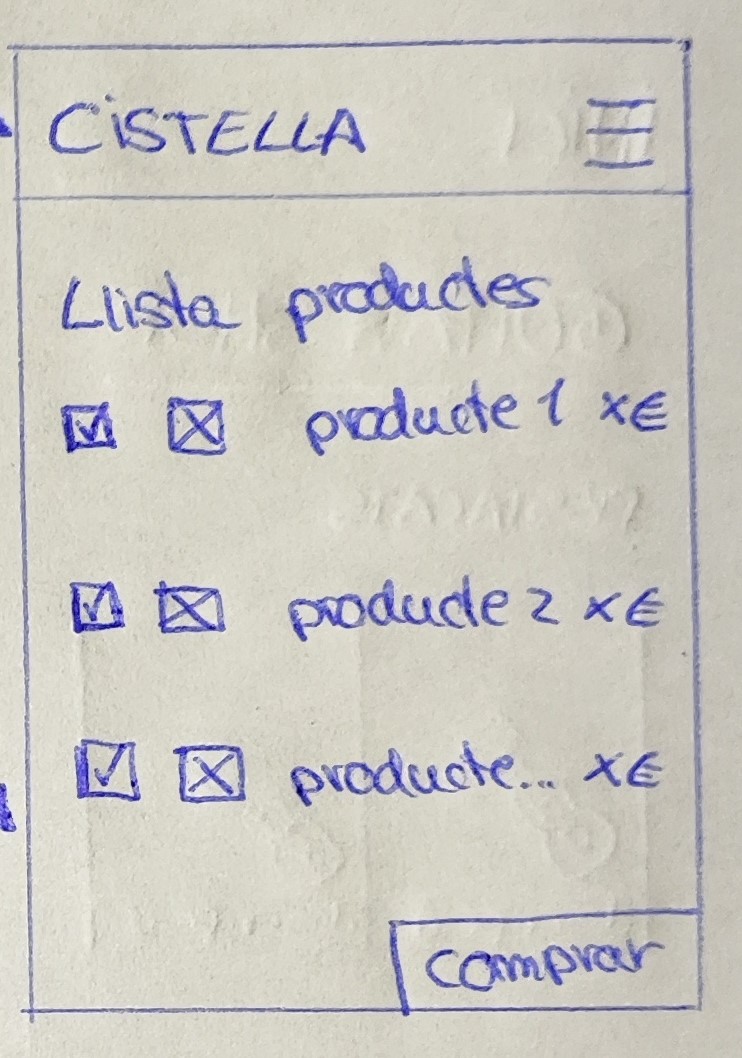 CiSTELLA
Llista productes
producte 1 x€
producte 2 x€
producte... x€
comprar